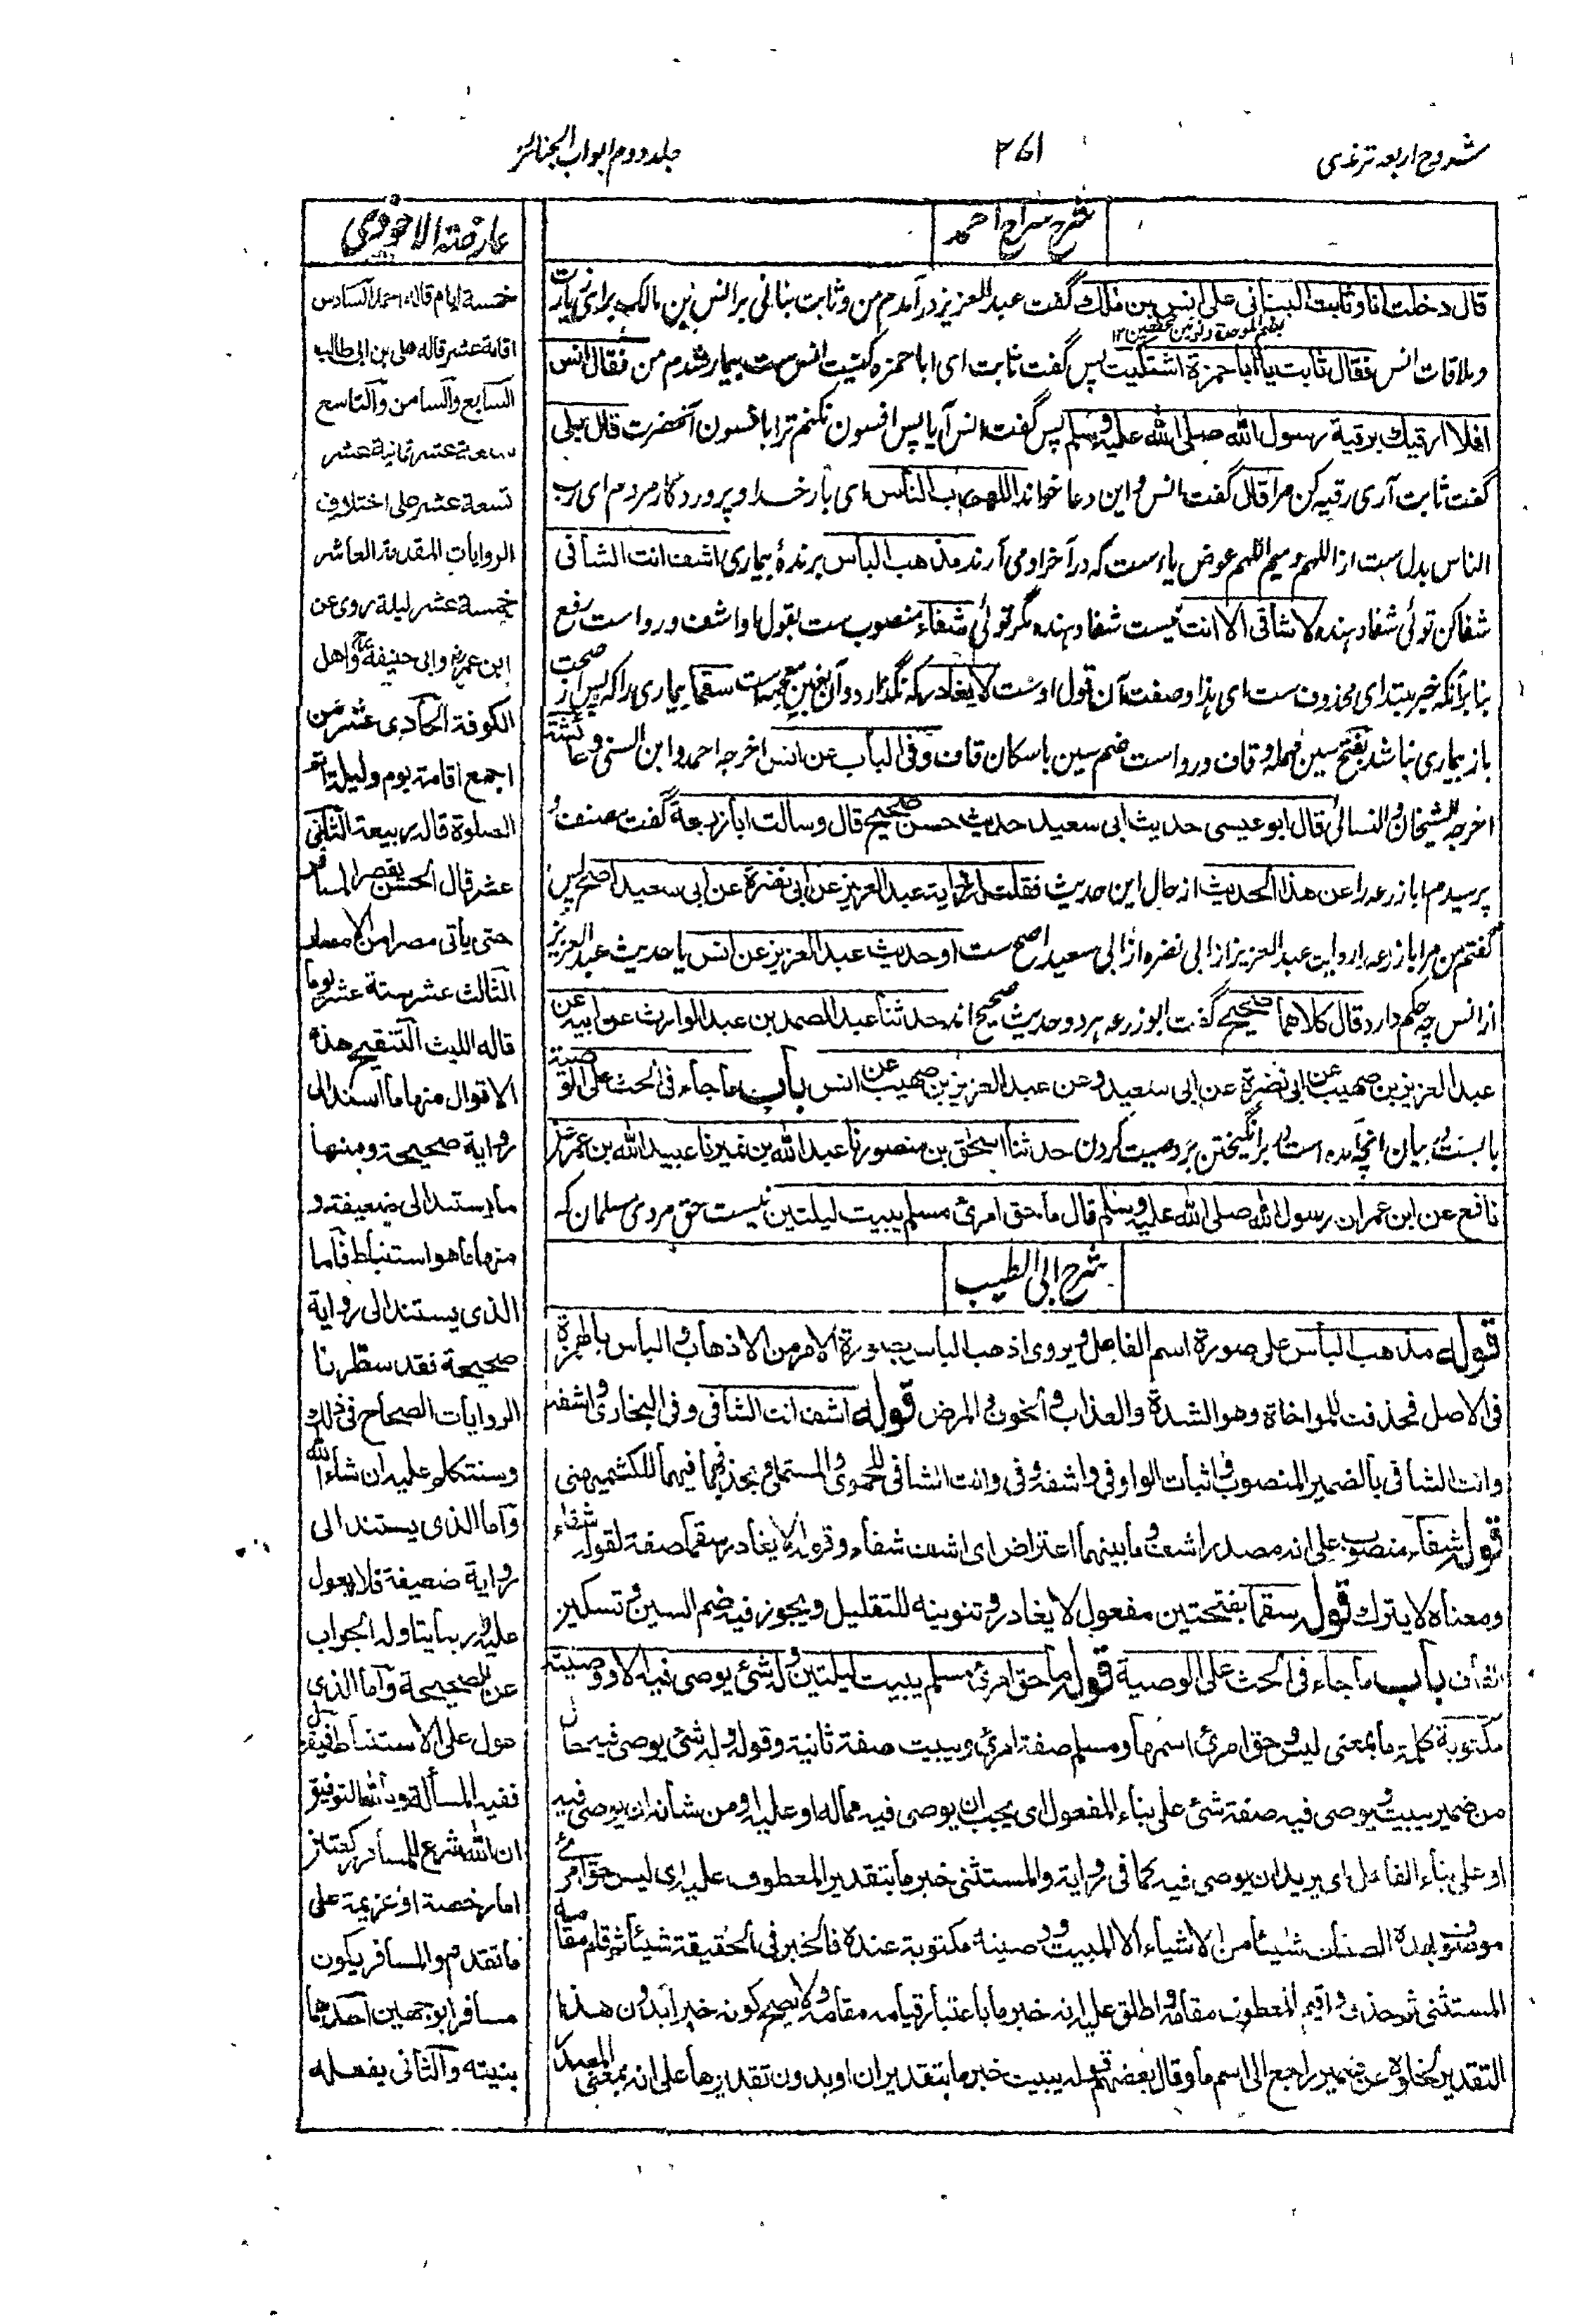 شروح اربعه ترمذی
۳۶۱
جلد دوم ابواب الجنائز
شرح سراج احمد
قال دخلت انا وثابت البنانی علی انس بن مالك گفت عبد العزیز درآمدم من وثابت بنانی بر انس بن مالک برای زیارت
وملاقات انس فقال ثابت یا ابا حمزة اشتکیت پس گفت ثابت ای ابا حمزه کنیت انس ست بیمار شدم من فقال انس
افلا ارقیك برقیة رسول الله صلی الله علیه وسلم پس گفت انس آیا پس افسون نکنم ترا بافسون آنحضرت قال بلی
گفت ثابت آری رقیه کن مرا قال گفت انس و این دعا خواند اللهم رب الناس ای بار خدا و پروردگار مردم ای رب
الناس بدل ست از اللهم ومیم اللهم عوض یاء ست که در آخر او می آرند مذهب البأس برندهٔ بیماری اشف انت الشافی
شفا کن توئی شفا دهنده لا شافی الا انت نیست شفا دهنده مگر توئی شفاء منصوب ست بقول او اشف وروا ست رفع
بنا بر آنکه خبر مبتدای محذوف ست ای هذا وصفت آن قول اوست لا یغادر که نگذارد و آن بغین معجمه است سقما بیماری را که پس از صحت
باز بیماری نباشد بفتح سین مهمله وقاف وروا ست ضم سین باسکان قاف وفی الباب عن انس اخرجه احمد وابن السنی وعائشة
اخرجه الشیخان والنسائی قال ابو عیسی حدیث ابی سعید حدیث حسن صحیح قال وسالت ابا زرعة گفت مصنف و
پرسیدم ابا زرعه را عن هذا الحدیث از حال این حدیث فقلت له روایة عبد العزیز عن ابی نضرة عن ابی سعید اصح پس
گفتم من مر ابا زرعه را روایت عبد العزیز از ابی نضره از ابی سعید اصح ست او حدیث عبد العزیز عن انس یا حدیث عبد العزیز
از انس چه حکم دارد قال کلاهما صحیح گفت ابو زرعه هر دو حدیث صحیح اند حدثنا عبد الصمد بن عبد الوارث عن ابیه عن
عبد العزیز بن صهیب عن ابی نضرة عن ابی سعید وعن عبد العزیز بن صهیب عن انس باب ما جاء فی الحث علی الوصیة
بابست در بیان آنچه آمده است در برانگیختن بر وصیت کردن حدثنا اسحق بن منصور نا عبد الله بن نمیر نا عبید الله بن عمر عن
نافع عن ابن عمر ان رسول الله صلی الله علیه وسلم قال ما حق امرئ مسلم یبیت لیلتین نیست حق مردی مسلمان که
شرح ابی الطیب
قوله مذهب البأس علی صورة اسم الفاعل ویروی اذهب البأس بصورة الامر من الاذهاب والبأس بالهمزة
فی الاصل فحذفت للمواخاة وهو الشدة والعذاب والخوف والمرض قوله اشف انت الشافی وفی البخاری واشفه
وانت الشافی بالضمیر المنصوب واثبات الواو فی واشفه وفی وانت الشافی للحموی والمستملی وبحذفهما فیهما للکشمیهنی
قوله شفاء منصوب علی انه مصدر اشف وما بینهما اعتراض ای اشف شفاء وقوله لا یغادر سقما صفة لقوله شفاء
ومعناه لا یترك قوله سقما بفتحتین مفعول لا یغادر وتنوینه للتقلیل ویجوز فیه ضم السین وتسکین
القاف باب ما جاء فی الحث علی الوصیة قوله ما حق امرئ مسلم یبیت لیلتین وله شئ یوصی فیه الا ووصیته
مکتوبة کلمة ما بمعنی لیس وحق امرئ اسمها ومسلم صفة امرئ ویبیت صفة ثانیة وقوله وله شئ یوصی فیه حال
من ضمیر یبیت ویوصی فیه صفة شئ علی بناء المفعول ای یجب ان یوصی فیه مماله او علیه او من شأنه ان یوصی فیه
او علی بناء الفاعل ای یرید ان یوصی فیه کما فی روایة والمستثنی خبر ما بتقدیر المعطوف علیه ای لیس حق امرئ
موصوف بهذه الصفات شیئا من الاشیاء الا المبیت ووصیته مکتوبة عنده فالخبر فی الحقیقة شیئا ثم قام مقامه
المستثنی ثم حذف واقیم المعطوف مقامه واطلق علیه انه خبر ما باعتبار قیامه مقامه ولا یصح کونه خبرا بدون هذا
التقدیر لخلوه عن ضمیر راجع الی اسم ما وقال بعضهم قوله یبیت خبر ما بتقدیر ان او بدون تقدیرها علی انه بمعنی المصدر
عارضة الاحوذی
خمسة ایام قاله احمد السادس
اقامة عشر قاله علی بن ابی طالب
السابع والثامن والتاسع
سبعة عشر ثمانیة عشر
تسعة عشر علی اختلاف
الروایات المقدمة العاشر
خمسة عشر لیلة روی عن
ابن عمر وابی حنیفة واهل
الکوفة الحادی عشر من
اجمع اقامة یوم ولیلة اتم
الصلوة قاله ربیعة الثانی
عشر قال الحسن یقصر المسافر
حتی یأتی مصرا من الامصار
الثالث عشر ستة عشر یوما
قاله اللیث التنقیح هذه
الاقوال منها ما استند الی
روایة صحیحة ومنها
ما یستند الی ضعیفة و
منها ما هو استنباط فاما
الذی یستند الی روایة
صحیحة فقد سطرنا
الروایات الصحاح فی ذلك
وسنتکلم علیه ان شاء الله
واما الذی یستند الی
روایة ضعیفة فلا یعول
علیه وربما یتناوله الجواب
عن الصحیحة واما الذی
عول علی الاستنباط فیقول
ففیه المسألة وبالله التوفیق
ان الله شرع للمسافر رکعتین
اما رخصة او عزیمة علی
ما تقدم والمسافر یکون
مسافرا بوجهین احدهما
بنیته والثانی بفعله